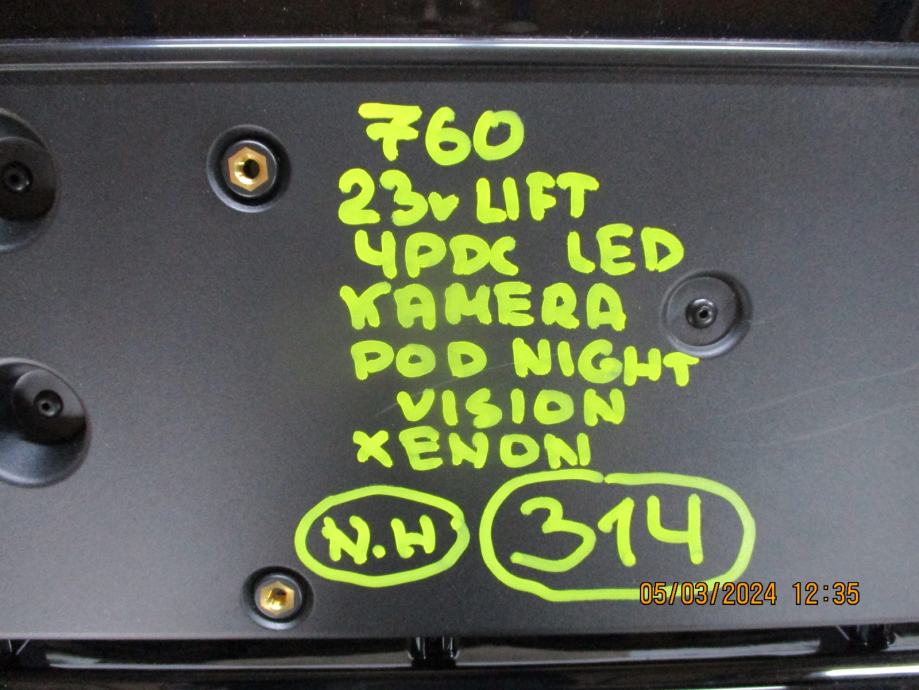 760
23v LIFT
4PDC LED
KAMERA
POD NIGHT
VISION
XENON
N.H 314
05/03/2024 12:35